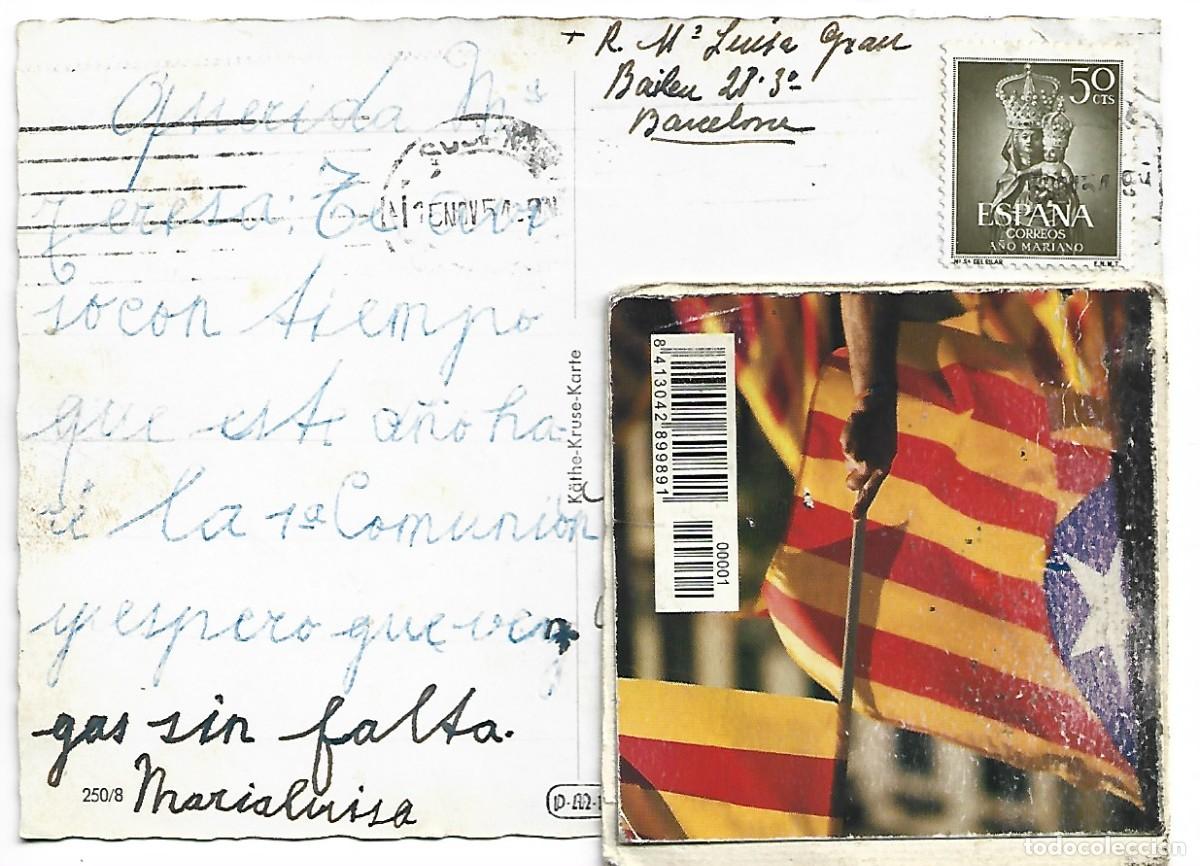 + R. Mª Luisa Grau
Bailen 28-3º
Barcelona
50
CTS
ESPAÑA
CORREOS
AÑO MARIANO
Nª Sª DEL PILAR
F.N.M.T.
Querida Mª
Teresa: Te avi
so con tiempo
que este año ha
ré la 1ª Comunión
y espero que ven
gas sin falta.
Marialuisa
250/8
Käthe-Kruse-Karte
NOV 54
8 413042 899891
00001
todocoleccion